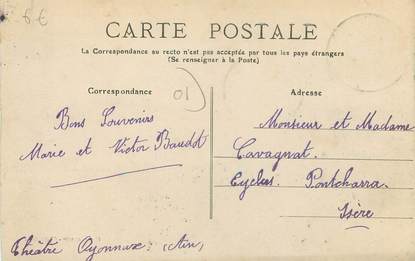 6€
CARTE POSTALE
La Correspondance au recto n'est pas acceptée par tous les pays étrangers
(Se renseigner à la Poste)
Correspondance
01
Bons Souvenirs
Marie et Victor Baudot
Théâtre Oyonnax (Ain)
Adresse
Monsieur et Madame
Cavagnat.
Cycles. Pontcharra.
Isère